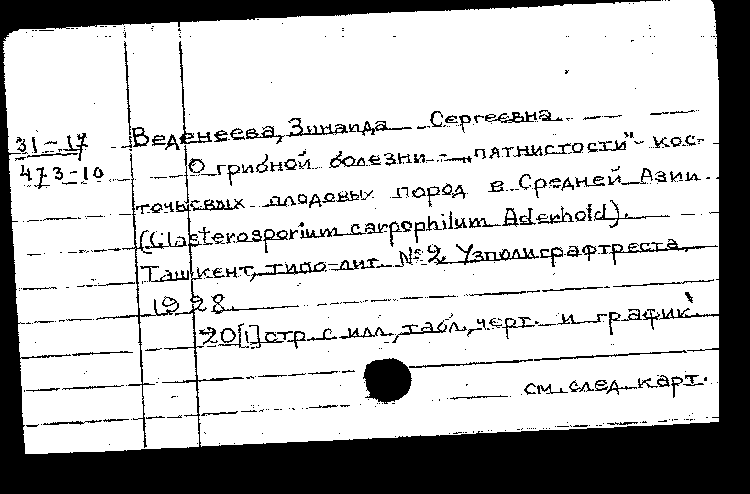 31-17
473-10
Веденеева, Зинаида Сергеевна.
О грибной болезни - „пятнистости" - кос-
точковых плодовых пород в Средней Азии
(Clasterosporium carpophilum Aderhold).
Ташкент, типо-лит. №2 Узполиграфтреста,
1928.
20[1] стр. с илл., табл., черт. и график.
см. след. карт.